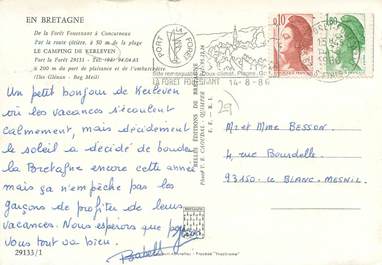 EN BRETAGNE
De la Forêt Fouesnant à Concarneau
Par la route côtière, à 50 m de la plage
LE CAMPING DE KERLEVEN
Port la Forêt 29133 - Tél. 94.04.63
à 200 m de port de plaisance et de l'embarcadère
(Iles Glénan - Beg Meil)
Un petit bonjour de Kerleven
où les vacances s'écoulent
Calmement, mais décidément
le soleil a décidé de bouder
la Bretagne encore cette année
mais ça n'empêche pas les
garçons de profiter de leurs
vacances. Nous espérons que pour
vous tout va bien.
29133/1
PORT LA FORET
LA FORET FOUESNANT 14-8-86
0,10
1,80
29
Mr et Mme BESSON.
4 rue Bourdelle
93150 - Le BLANC-MESNIL